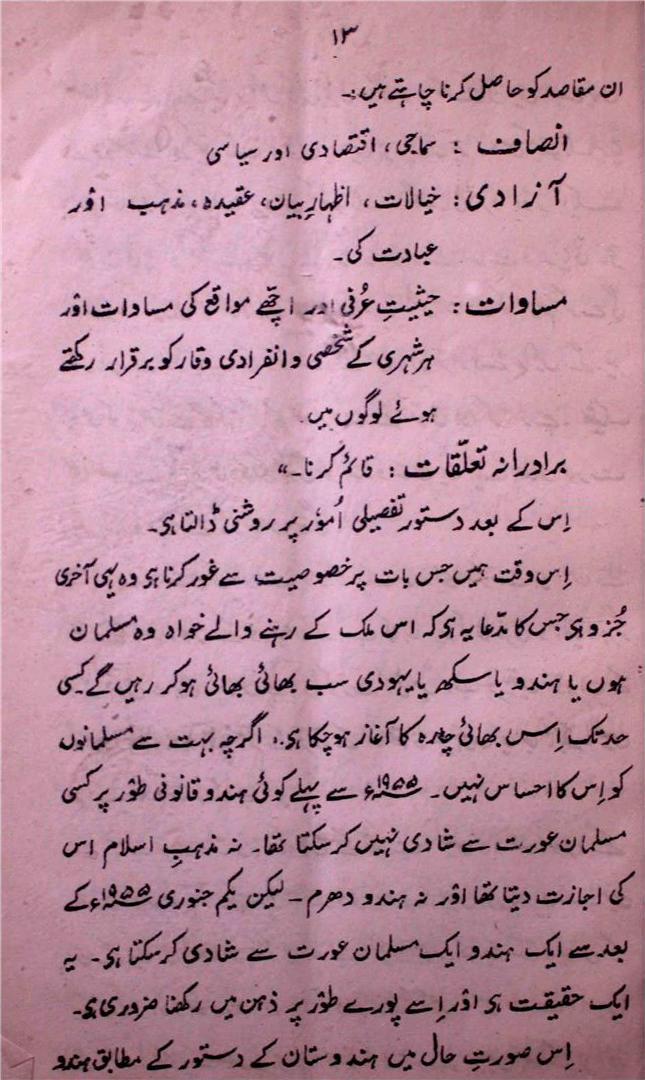 ۱۳
ان مقاصد کو حاصل کرنا چاہتے ہیں:۔
انصاف : سماجی، اقتصادی اور سیاسی
آزادی: خیالات، اظہارِ بیان، عقیدہ، مذہب اور
عبادت کی۔
مساوات: حیثیتِ عُرفی اور اچھّے مواقع کی مساوات اور
ہر شہری کے شخصی و انفرادی وقار کو برقرار رکھتے
ہوئے لوگوں میں۔
برادرانہ تعلّقات : قائم کرنا۔"
اِس کے بعد دستور تفصیلی اُمور پر روشنی ڈالتا ہی۔
اِس وقت ہمیں جس بات پر خصوصیت سے غور کرنا ہی وہ یہی آخری
جُزو ہی جس کا مدّعا یہ ہی کہ اس ملک کے رہنے والے خواہ وہ مسلمان
ہوں یا ہندو یا سکھ یا یہودی سب بھائی بھائی ہو کر رہیں گے۔ کسی
حد تک اِس بھائی چارہ کا آغاز ہو چکا ہی۔ اگرچہ بہت سے مسلمانوں
کو اِس کا احساس نہیں۔ ۱۹۵۵ء سے پہلے کوئی ہندو قانونی طور پر کسی
مسلمان عورت سے شادی نہیں کر سکتا تھا۔ نہ مذہبِ اسلام اس
کی اجازت دیتا تھا اور نہ ہندو دھرم۔ لیکن یکم جنوری ۱۹۵۵ء کے
بعد سے ایک ہندو ایک مسلمان عورت سے شادی کر سکتا ہی۔ یہ
ایک حقیقت ہی اور اِسے پورے طور پر ذہن میں رکھنا ضروری ہی۔
اِس صورتِ حال میں ہندوستان کے دستور کے مطابق ہندو